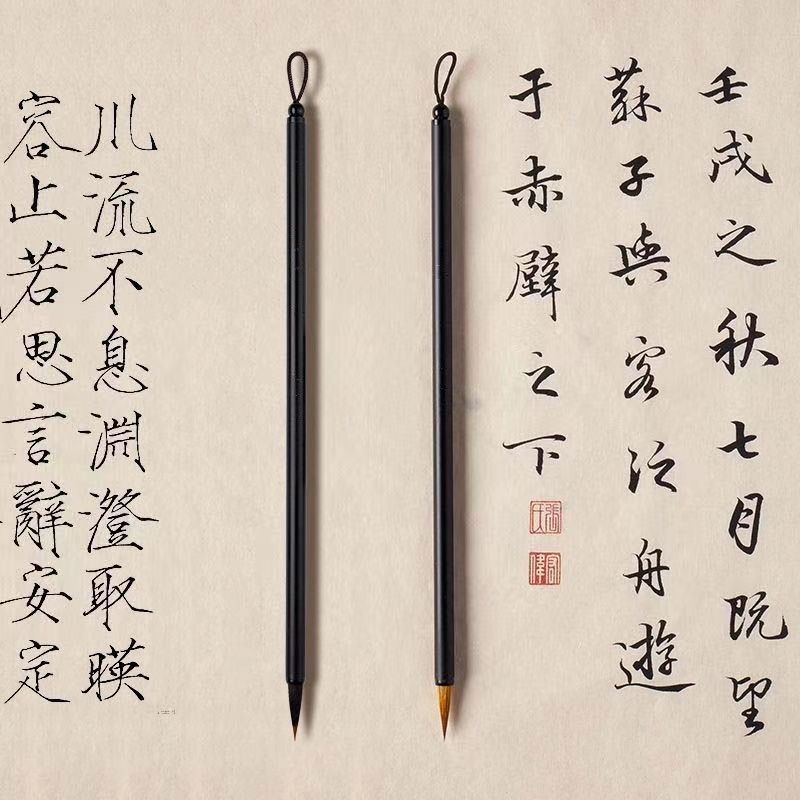 壬戌之秋七月既望
蘇子與客泛舟遊
于赤壁之下
張氏
川流不息淵澄取暎
容止若思言辭安定